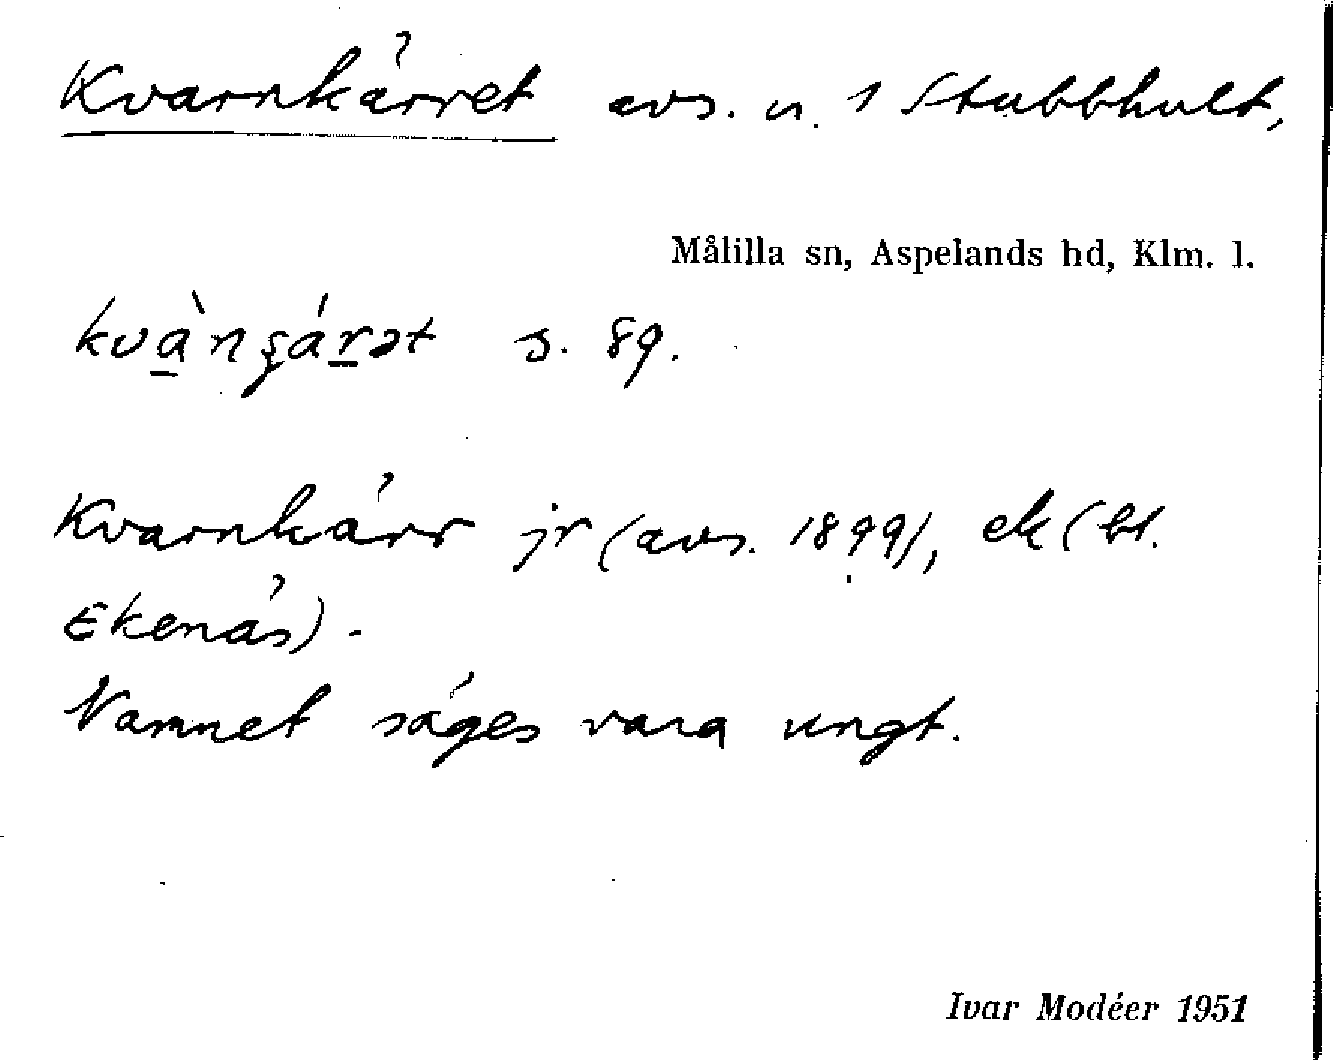 Kvarnkärret avs. u. 1 Stubbhult,
Målilla sn, Aspelands hd, Klm. l.
s. 89.
Kvarnkärr jr (avs. 1899), ek (bl.
Ekenäs).
Namnet säges vara ungt.
Ivar Modéer 1951